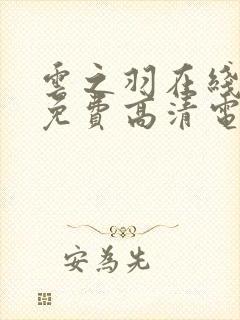 雲之羽在綫
免費高清電
安為先